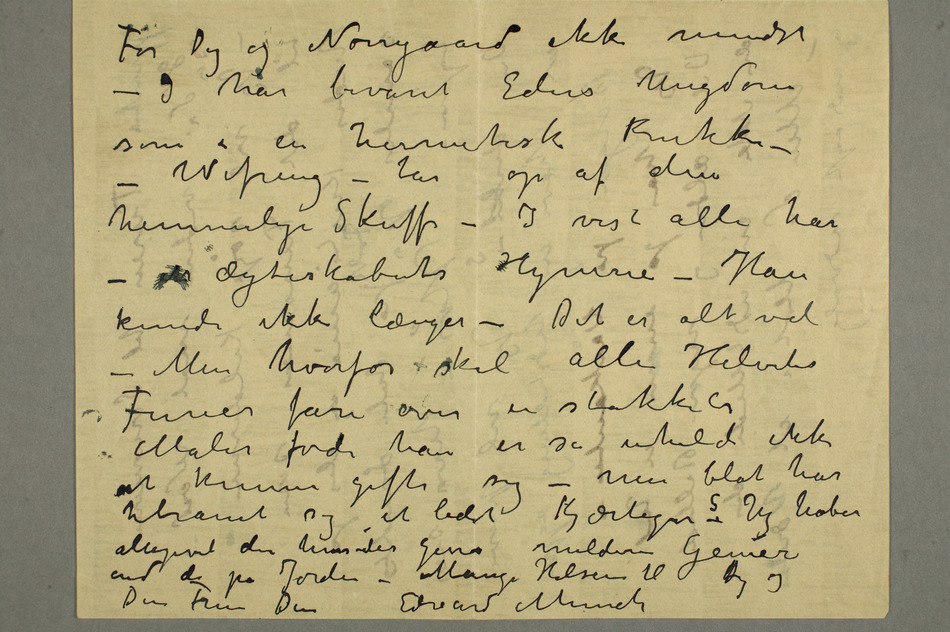 For Dig og Nörregaard ikke mindst
– I har bevaret Eders Ungdom
som i en hermetisk Krukke –
– tar op af den
hemmelige Skuffe – I vist alle har
– Ægteskabets Hymne – Han
kunde ikke længer – Det er alt vel
– Men hvorfor skal alle Helvedes
Furier fare over en stakkels
Maler fordi han er så uheldi ikke
at kunne gifte sig – men blot har
sig et ledet Kjærlighed Jeg håber
allegevel der hersker mildere Genier
end de på Jorden – Mange Hilsener til Dig og
Din Frue Din Edvard Munch